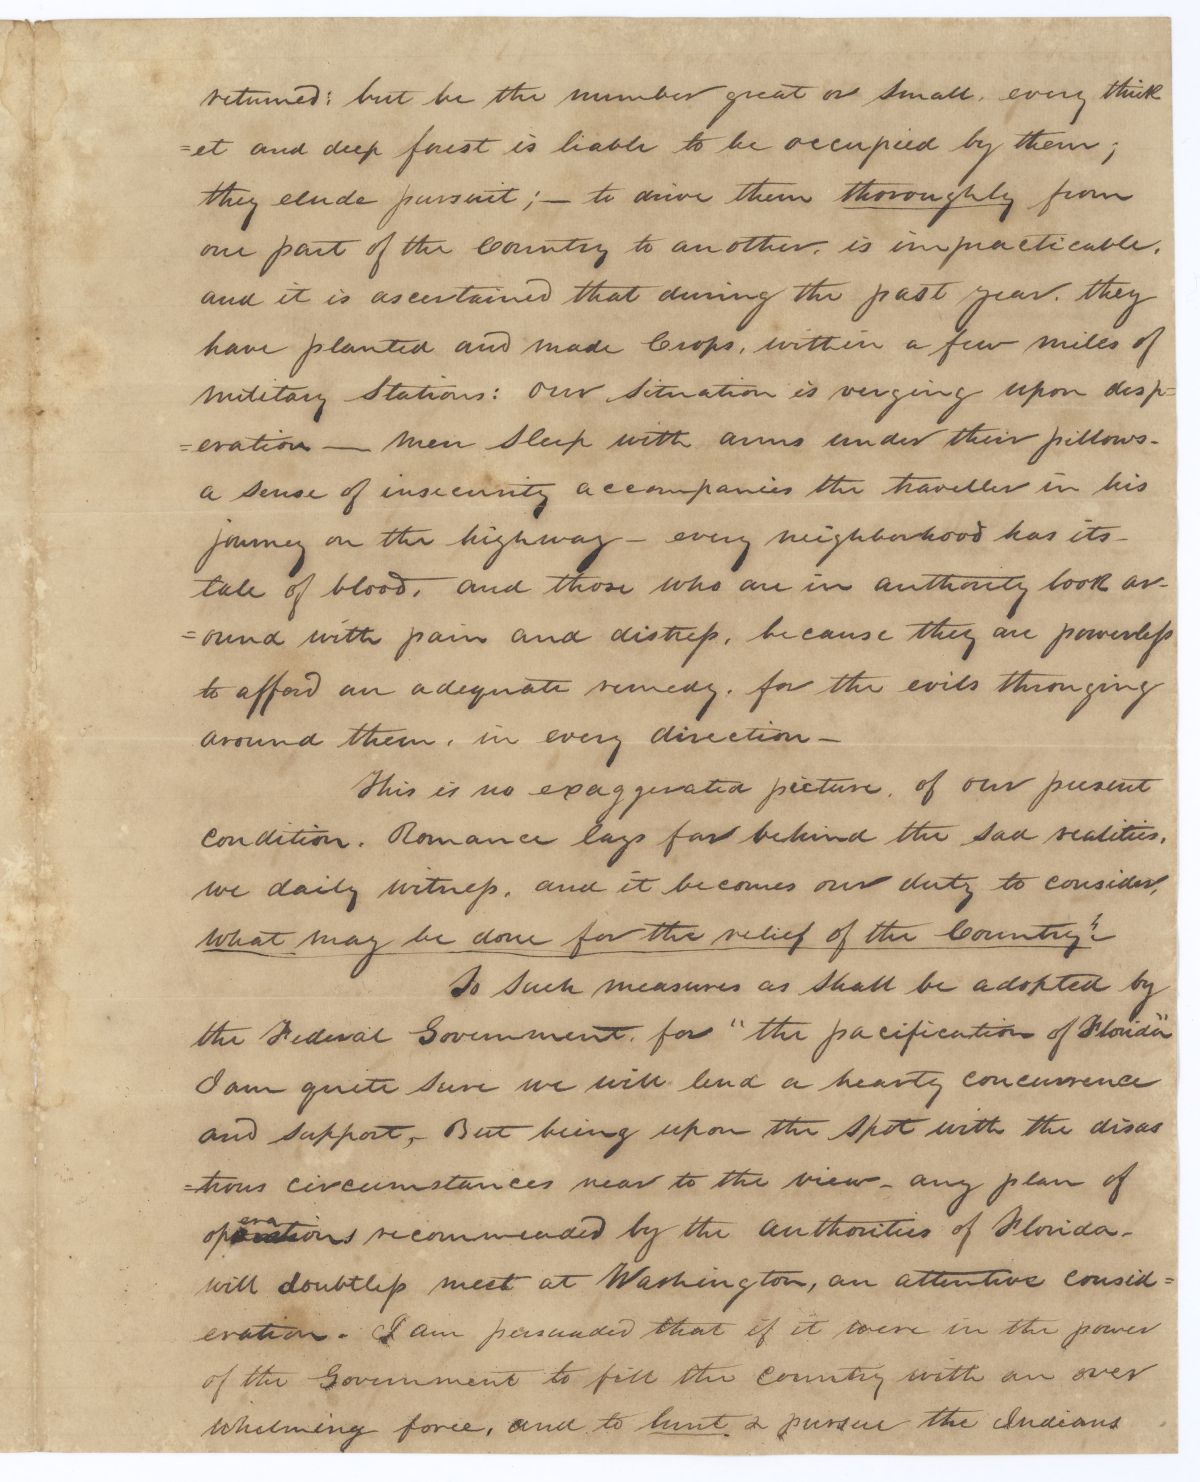 returned: but be the number great or small, every thick
=et and deep forest is liable to be occupied by them;
they elude pursuit; — to drive them thoroughly from
one part of the Country to another, is impracticable,
and it is ascertained that during the past year, they
have planted and made Crops, within a few miles of
military Stations: Our situation is verging upon desp=
=eration — men sleep with arms under their pillows —
a sense of insecurity accompanies the traveller in his
journey on the highway — every neighborhood has its —
tale of blood, and those who are in authority look ar-
=ound with pain and distress, because they are powerless
to afford an adequate remedy, for the evils thronging
around them, in every direction —
This is no exaggerated picture, of our present
condition. Romance lags far behind the sad realities,
we daily witness, and it becomes our duty to consider,
what may be done for the relief of the Country?
To such measures as shall be adopted by
the Federal Government, for "the pacification of Florida"
I am quite sure we will lend a hearty concurrence
and support, — But being upon the spot with the disas
=trous circumstances near to the view — any plan of
operations recommended by the authorities of Florida —
will doubtless meet at Washington, an attentive consid=
eration. I am persuaded that if it were in the power
of the Government to fill the country with an over
whelming force, and to hunt & pursue the Indians